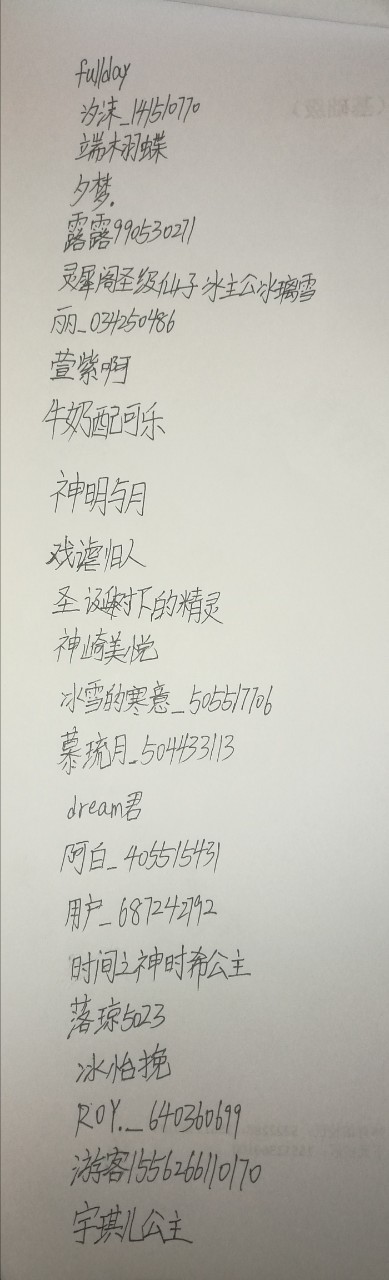 fullday
汐沫_141510770
端木羽蝶
夕梦.
露露990530271
灵犀阁圣级仙子冰主公冰璃雪
丽_034250486
萱紫啊
牛奶配可乐
神明与月
戏谑旧人
圣诞树下的精灵
神崎美悦
冰雪的寒意_505517706
慕琉月_504433113
dream君
阿白_405515431
用户_687242792
时间之神时希公主
落琼5023
冰怡挽
ROY._640360699
游客1556266110170
宇琪儿公主